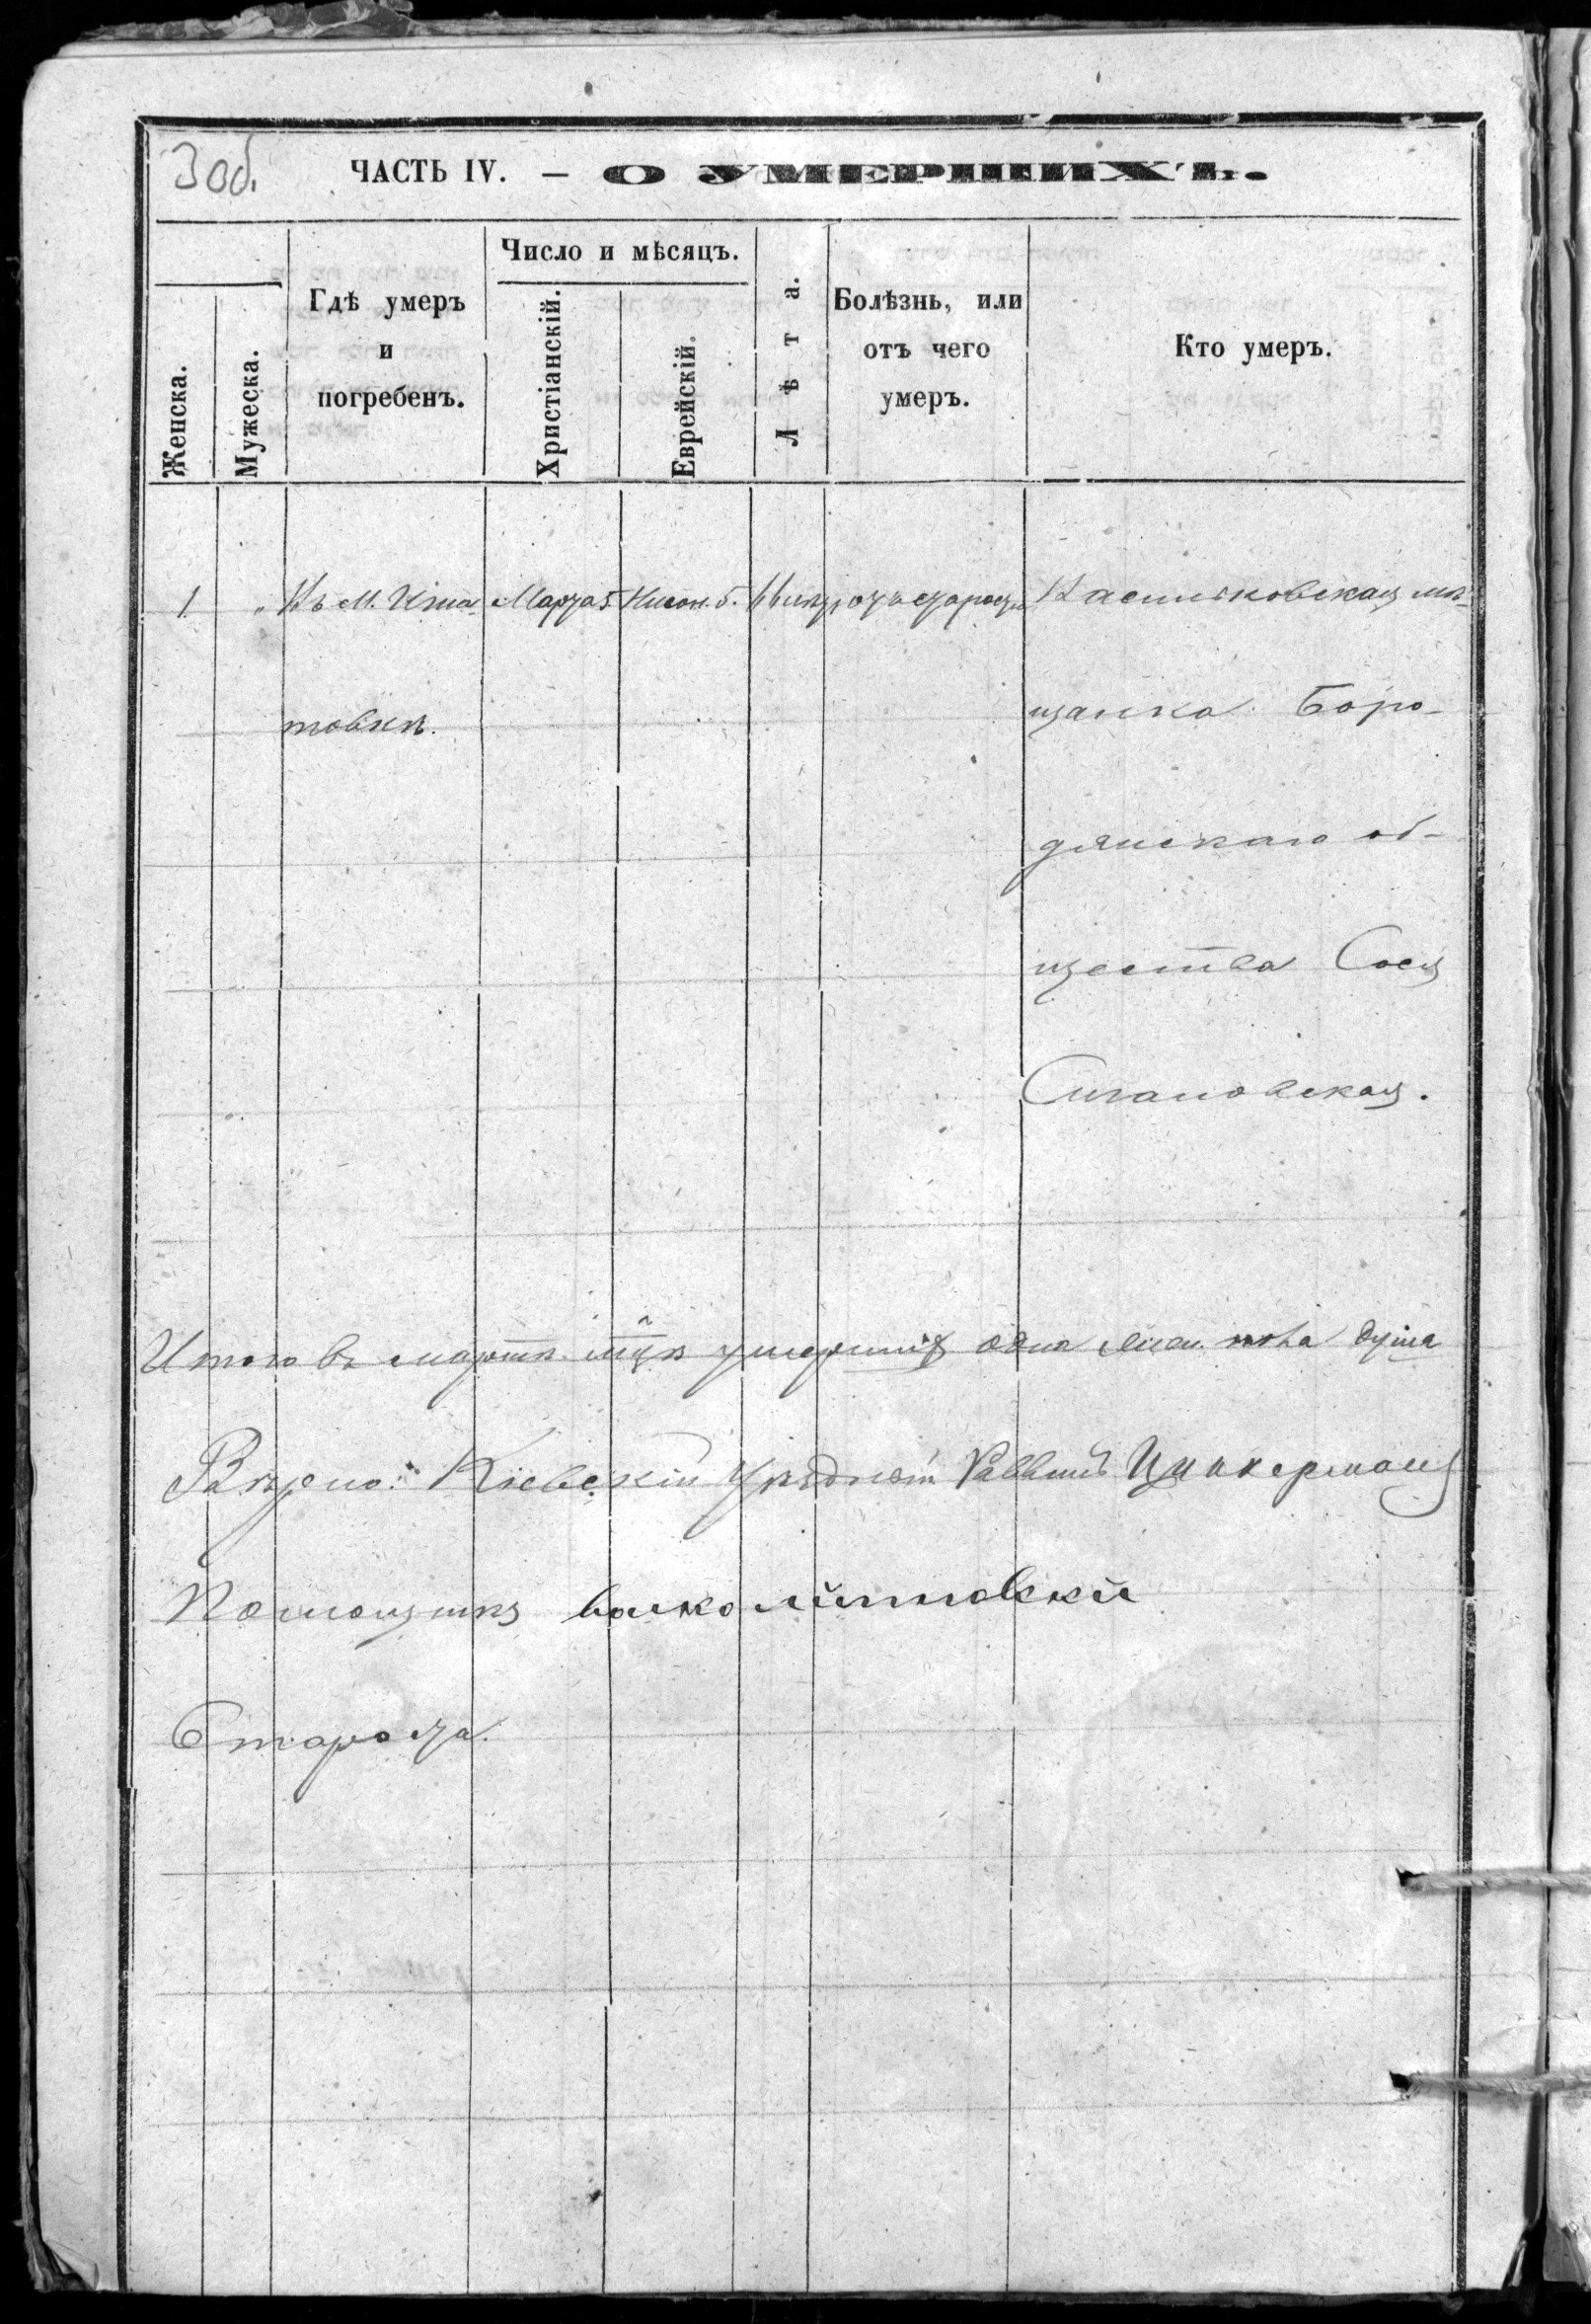 3 об.
ЧАСТЬ IV. — О УМЕРШИХЪ.
Женска.
Мужеска.
Гдѣ умеръ
и
погребенъ.
Число и мѣсяцъ.
Христіанскій.
Еврейскій.
Лѣта.
Болѣзнь, или
отъ чего
умеръ.
Кто умеръ.
1 " Въ М. Игна- Марта 5 Нисон. 5. отъ старости Васильковская мѣ-
товкѣ. щанка Боро-
дянскаго об-
щества Сося
Сигаловская.
Итого въ мартѣ мцѣ умершихъ одна жен. пола душа
Вѣрно: Кіевскій Уѣздный Раввинъ Цукерманъ
Помощникъ
Староста.